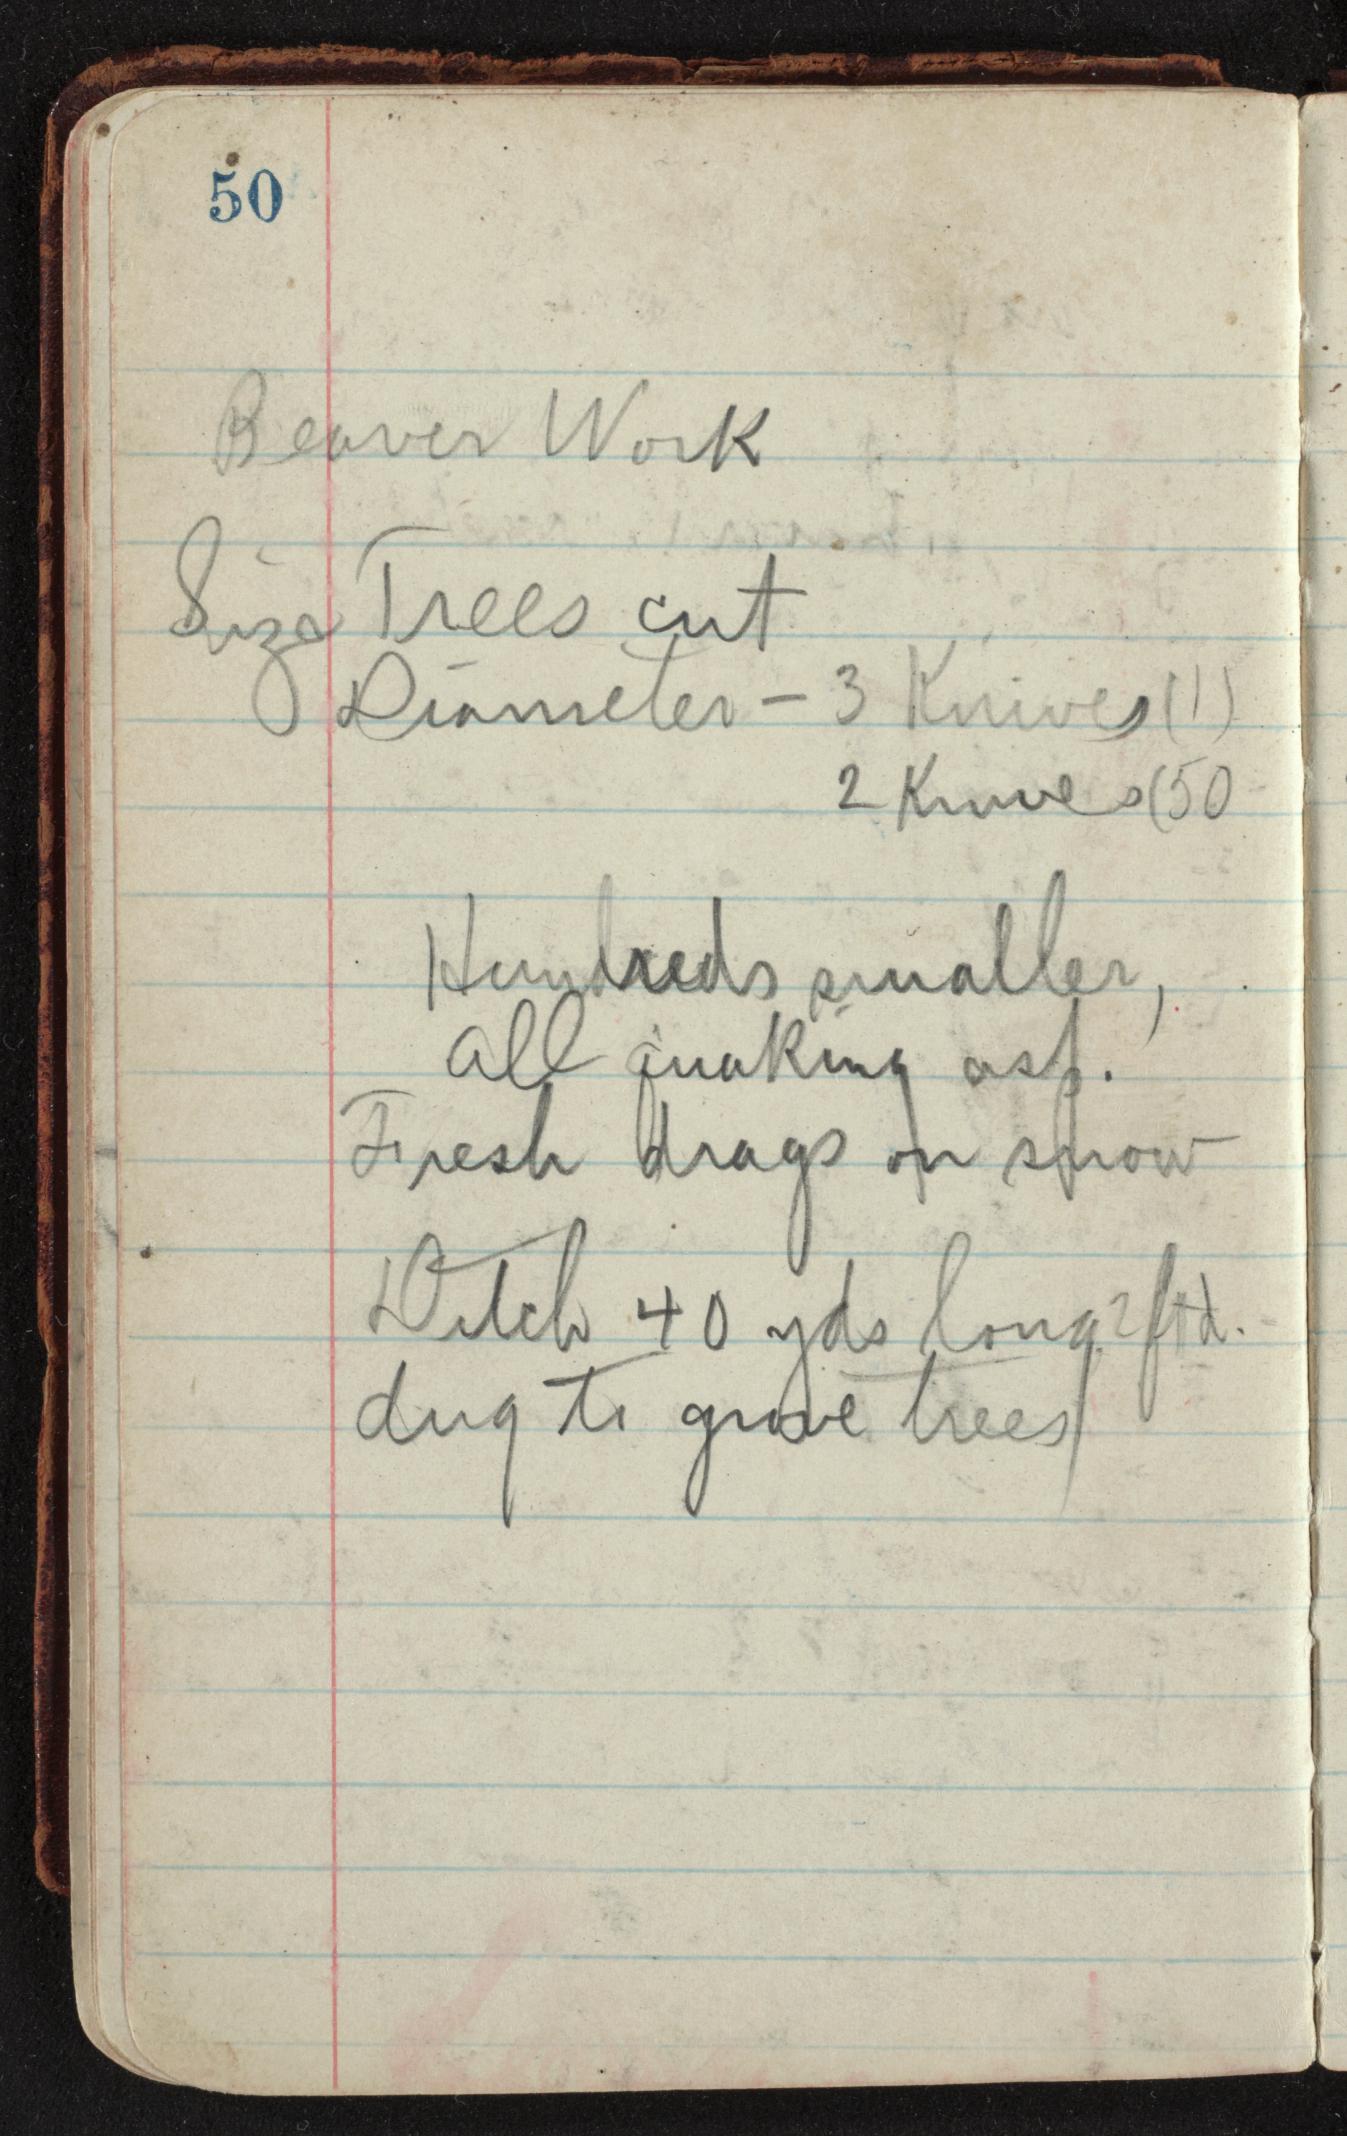 50
Beaver Work
Size Trees cut
Diameter - 3 Knives (1)
2 Knives (50
Hundreds smaller,
all quaking asp.
Fresh drags on snow
Ditch 40 yds long 2 ft d.
dug to grove trees